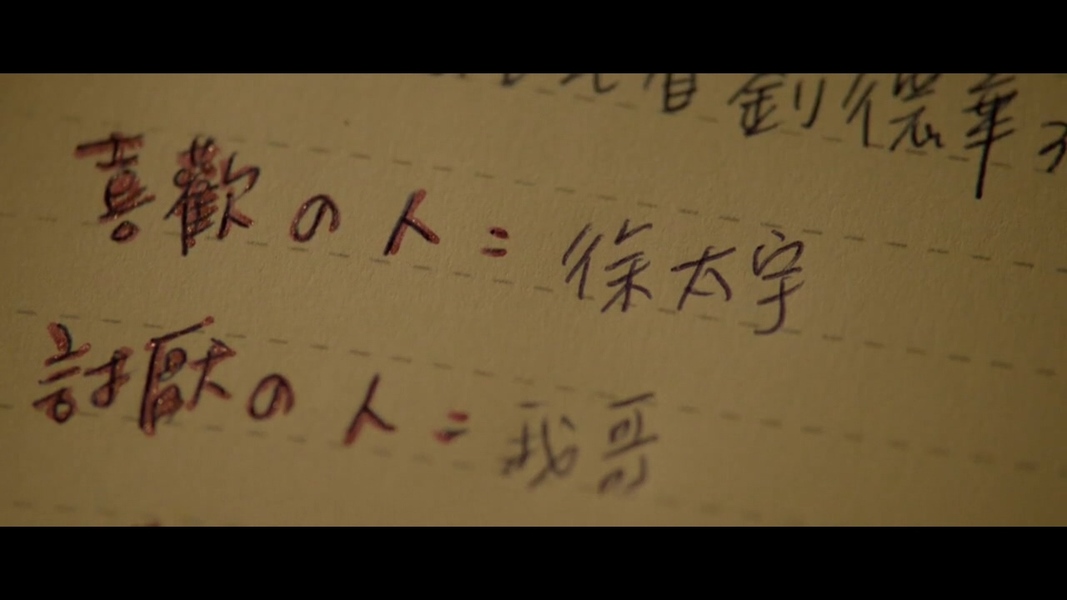 劉德華
喜歡の人=徐太宇
討厭の人=我哥